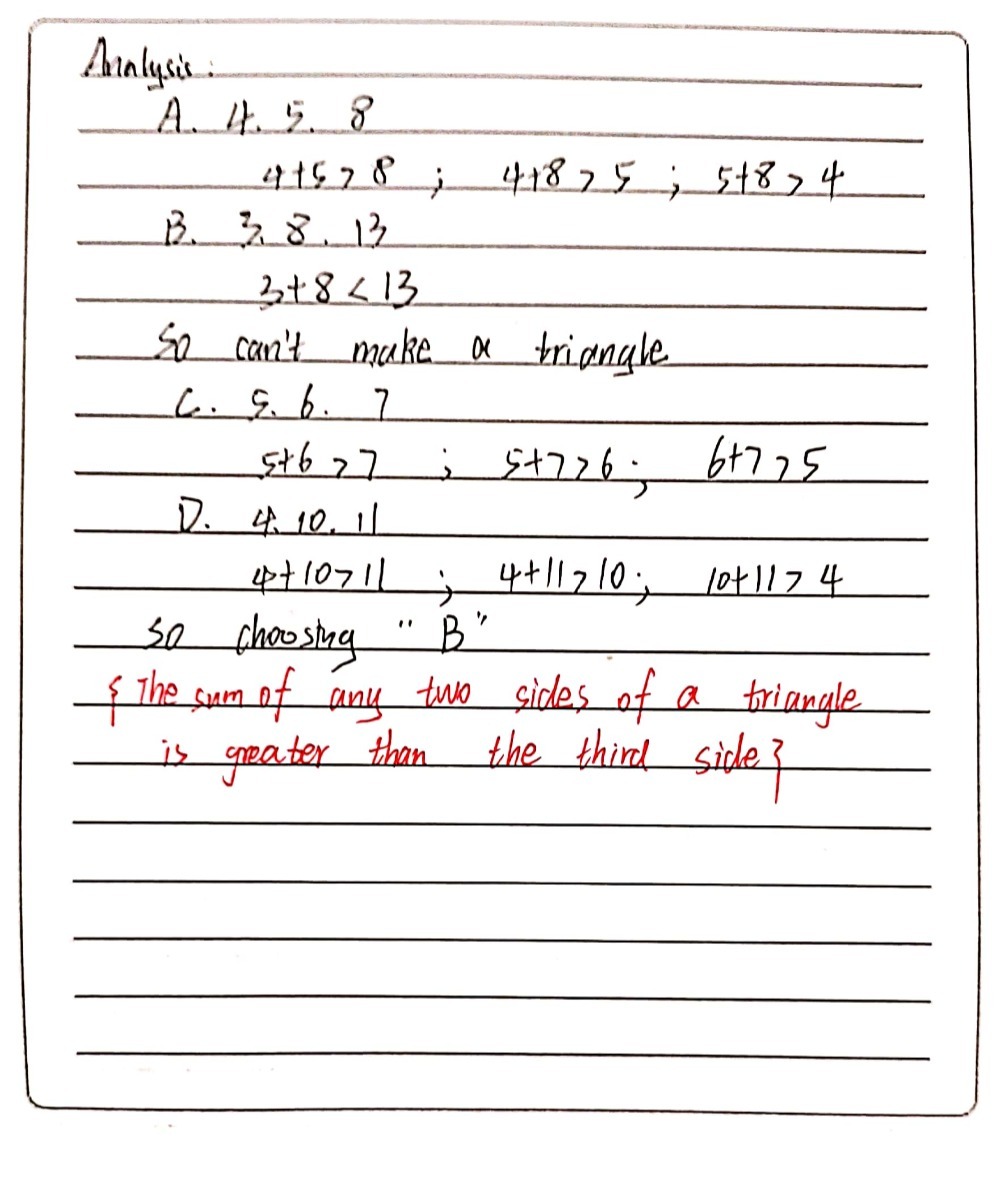 Analysis:
A. 4. 5. 8
4+5>8 ; 4+8>5 ; 5+8>4
B. 3. 8. 13
3+8<13
So can't make a triangle
C. 5. 6. 7
5+6>7 ; 5+7>6 ; 6+7>5
D. 4. 10. 11
4+10>11 ; 4+11>10 ; 10+11>4
so choosing "B"
{ The sum of any two sides of a triangle
is greater than the third side }